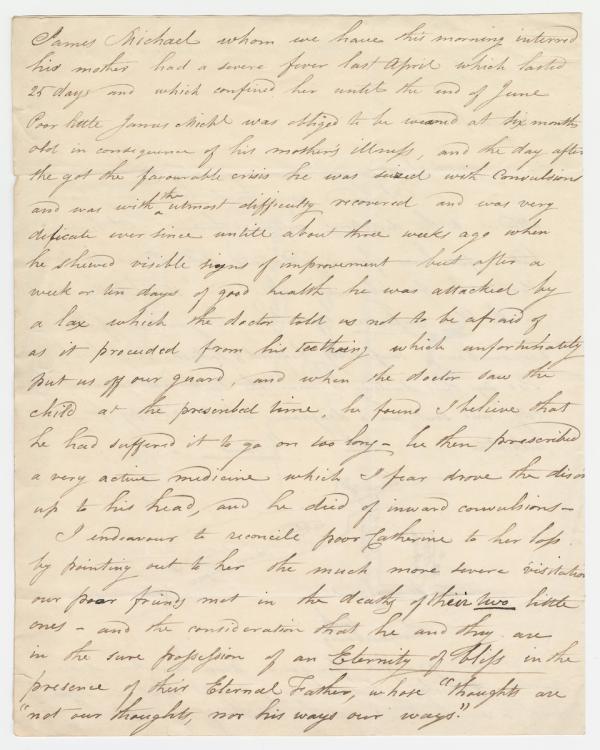 James Michael whom we have this morning interred
his mother had a severe fever last April which lasted
25 days and which confined her until the end of June
Poor little James Michl was obliged to be weaned at six months
old in consequence of his mother's illness, and the day after
she got the favourable crisis he was seized with Convulsions
and was with the utmost difficulty recovered and was very
delicate ever since untill about three weeks ago when
he shewed visible signs of improvement but after a
week or ten days of good health he was attacked by
a lax which the doctor told us not to be afraid of
as it proceeded from his teething which unfortunately
put us off our guard, and when the doctor saw the
child at the prescribed time, he found I believe that
he had suffered it to go on too long – he then prescribed
a very active medicine which I fear drove the
up to his head, and he died of inward convulsions –
I endeavour to reconcile poor Catherine to her loss
by pointing out to her the much more severe visitation
our poor friends met in the deaths of their two little
ones – and the consideration that he and they are
in the sure possession of an Eternity of bliss in the
presence of their Eternal Father, whose "thoughts are
"not our thoughts, nor his ways our ways."